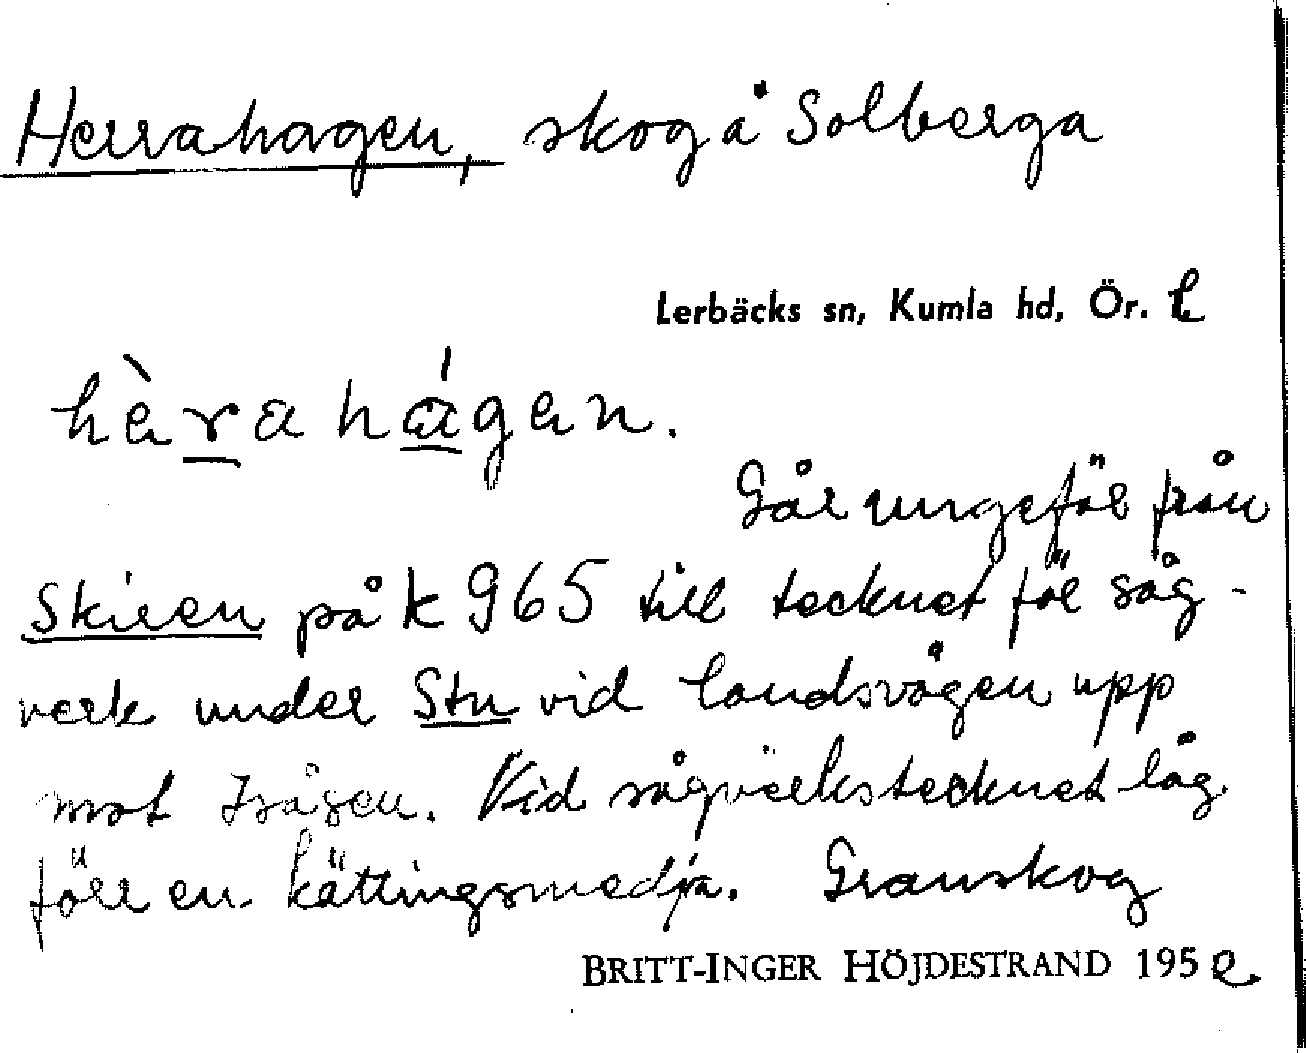 Herrahagen, skog å Solberga
Lerbäcks sn, Kumla hd, Ör. l
hèrahágen.
Går ungefär från
Skieen på k 965 till tecknet för såg-
verk under Stu vid landsvägen upp
mot Isåsen. Vid sågverkstecknet låg
förr en kättingsmedja. Granskog
BRITT-INGER HÖJDESTRAND 1952